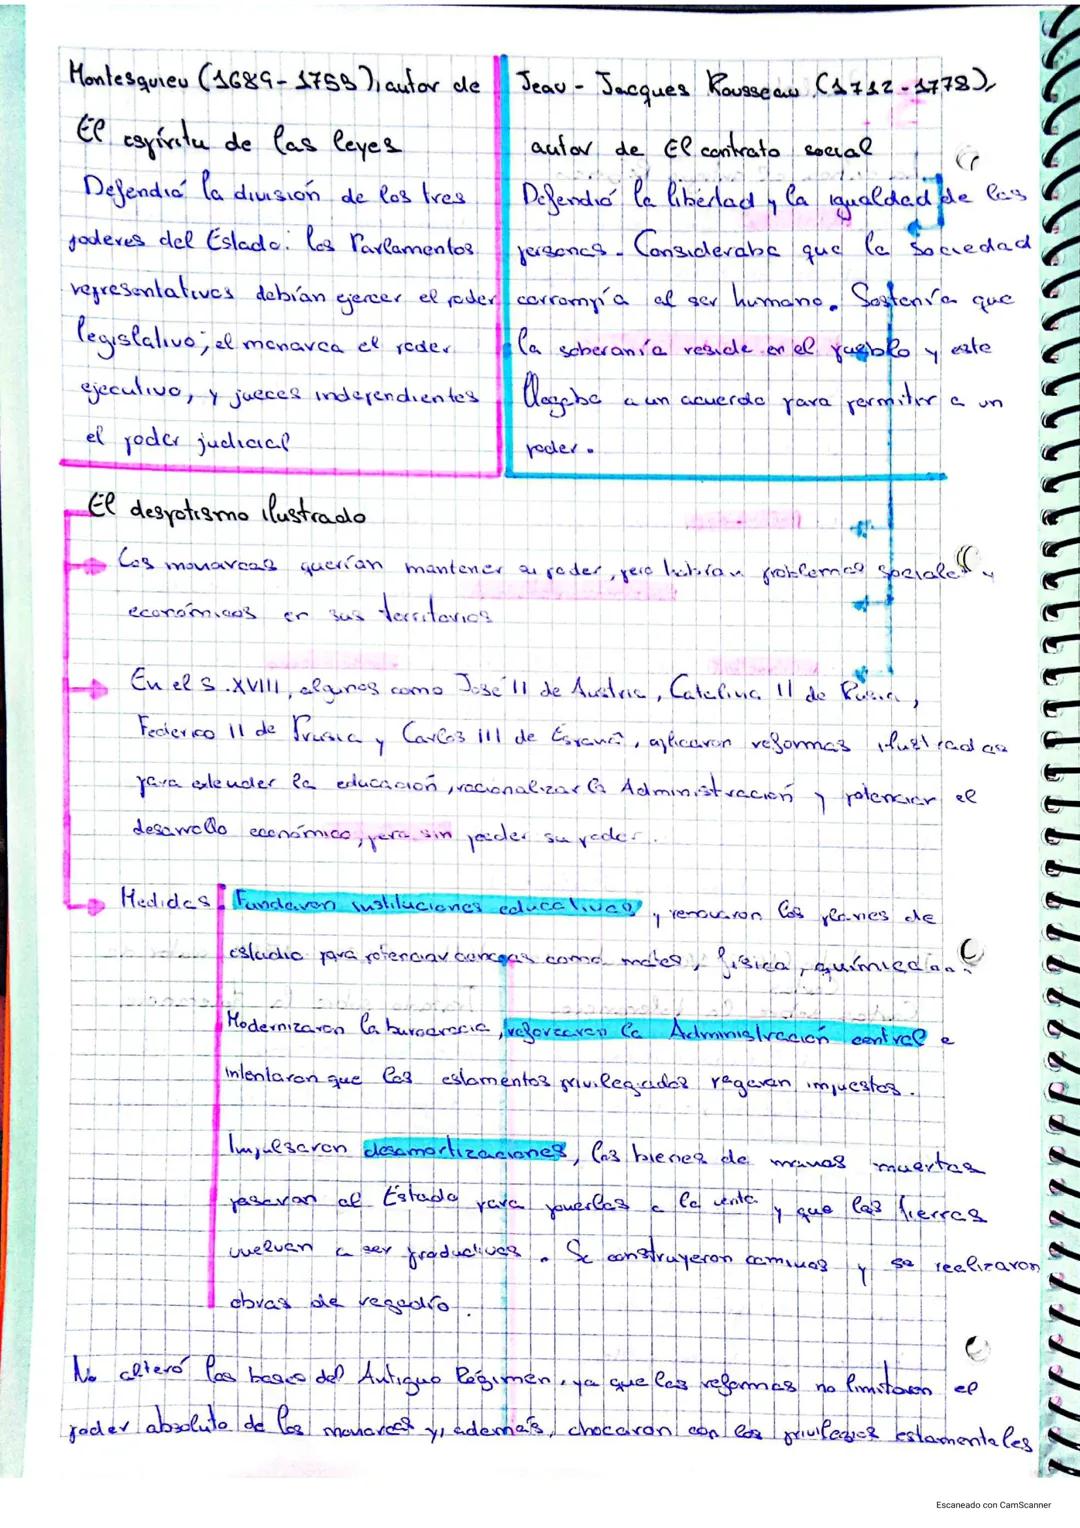 Montesquieu (1689-1755), autor de
El espíritu de las leyes
Defendió la división de los tres
poderes del Estado: los Parlamentos
representativos debían ejercer el poder
legislativo; el monarca el poder
ejecutivo, y jueces independientes
el poder judicial
Jean-Jacques Rousseau (1712-1778),
autor de El contrato social
Defendió la libertad y la igualdad de las
personas. Consideraba que la sociedad
corrompía al ser humano. Sostenía que
la soberanía reside en el pueblo y este
llegaba a un acuerdo para permitir a un
poder.
El despotismo ilustrado
Los monarcas querían mantener su poder, pero habían problemas sociales y
económicos en sus territorios
En el S.XVIII, algunos como José II de Austria, Catalina II de Rusia,
Federico II de Prusia y Carlos III de España, aplicaron reformas ilustradas
para extender la educación, racionalizar la Administración y potenciar el
desarrollo económico, pero sin perder su poder.
Medidas: Fundaron instituciones educativas, renovaron los planes de
estudio para potenciar ciencias como mates, física, química...
Modernizaron la burocracia, reforzaron la Administración central e
intentaron que los estamentos privilegiados pagaran impuestos.
Impulsaron desamortizaciones, los bienes de manos muertas
pasaran al Estado para ponerlas a la venta y que las tierras
vuelvan a ser productivas. Se construyeron caminos y se realizaron
obras de regadío.
No alteró las bases del Antiguo Régimen, ya que las reformas no limitaron el
poder absoluto de los monarcas y, además, chocaron con los privilegios estamentales
Escaneado con CamScanner